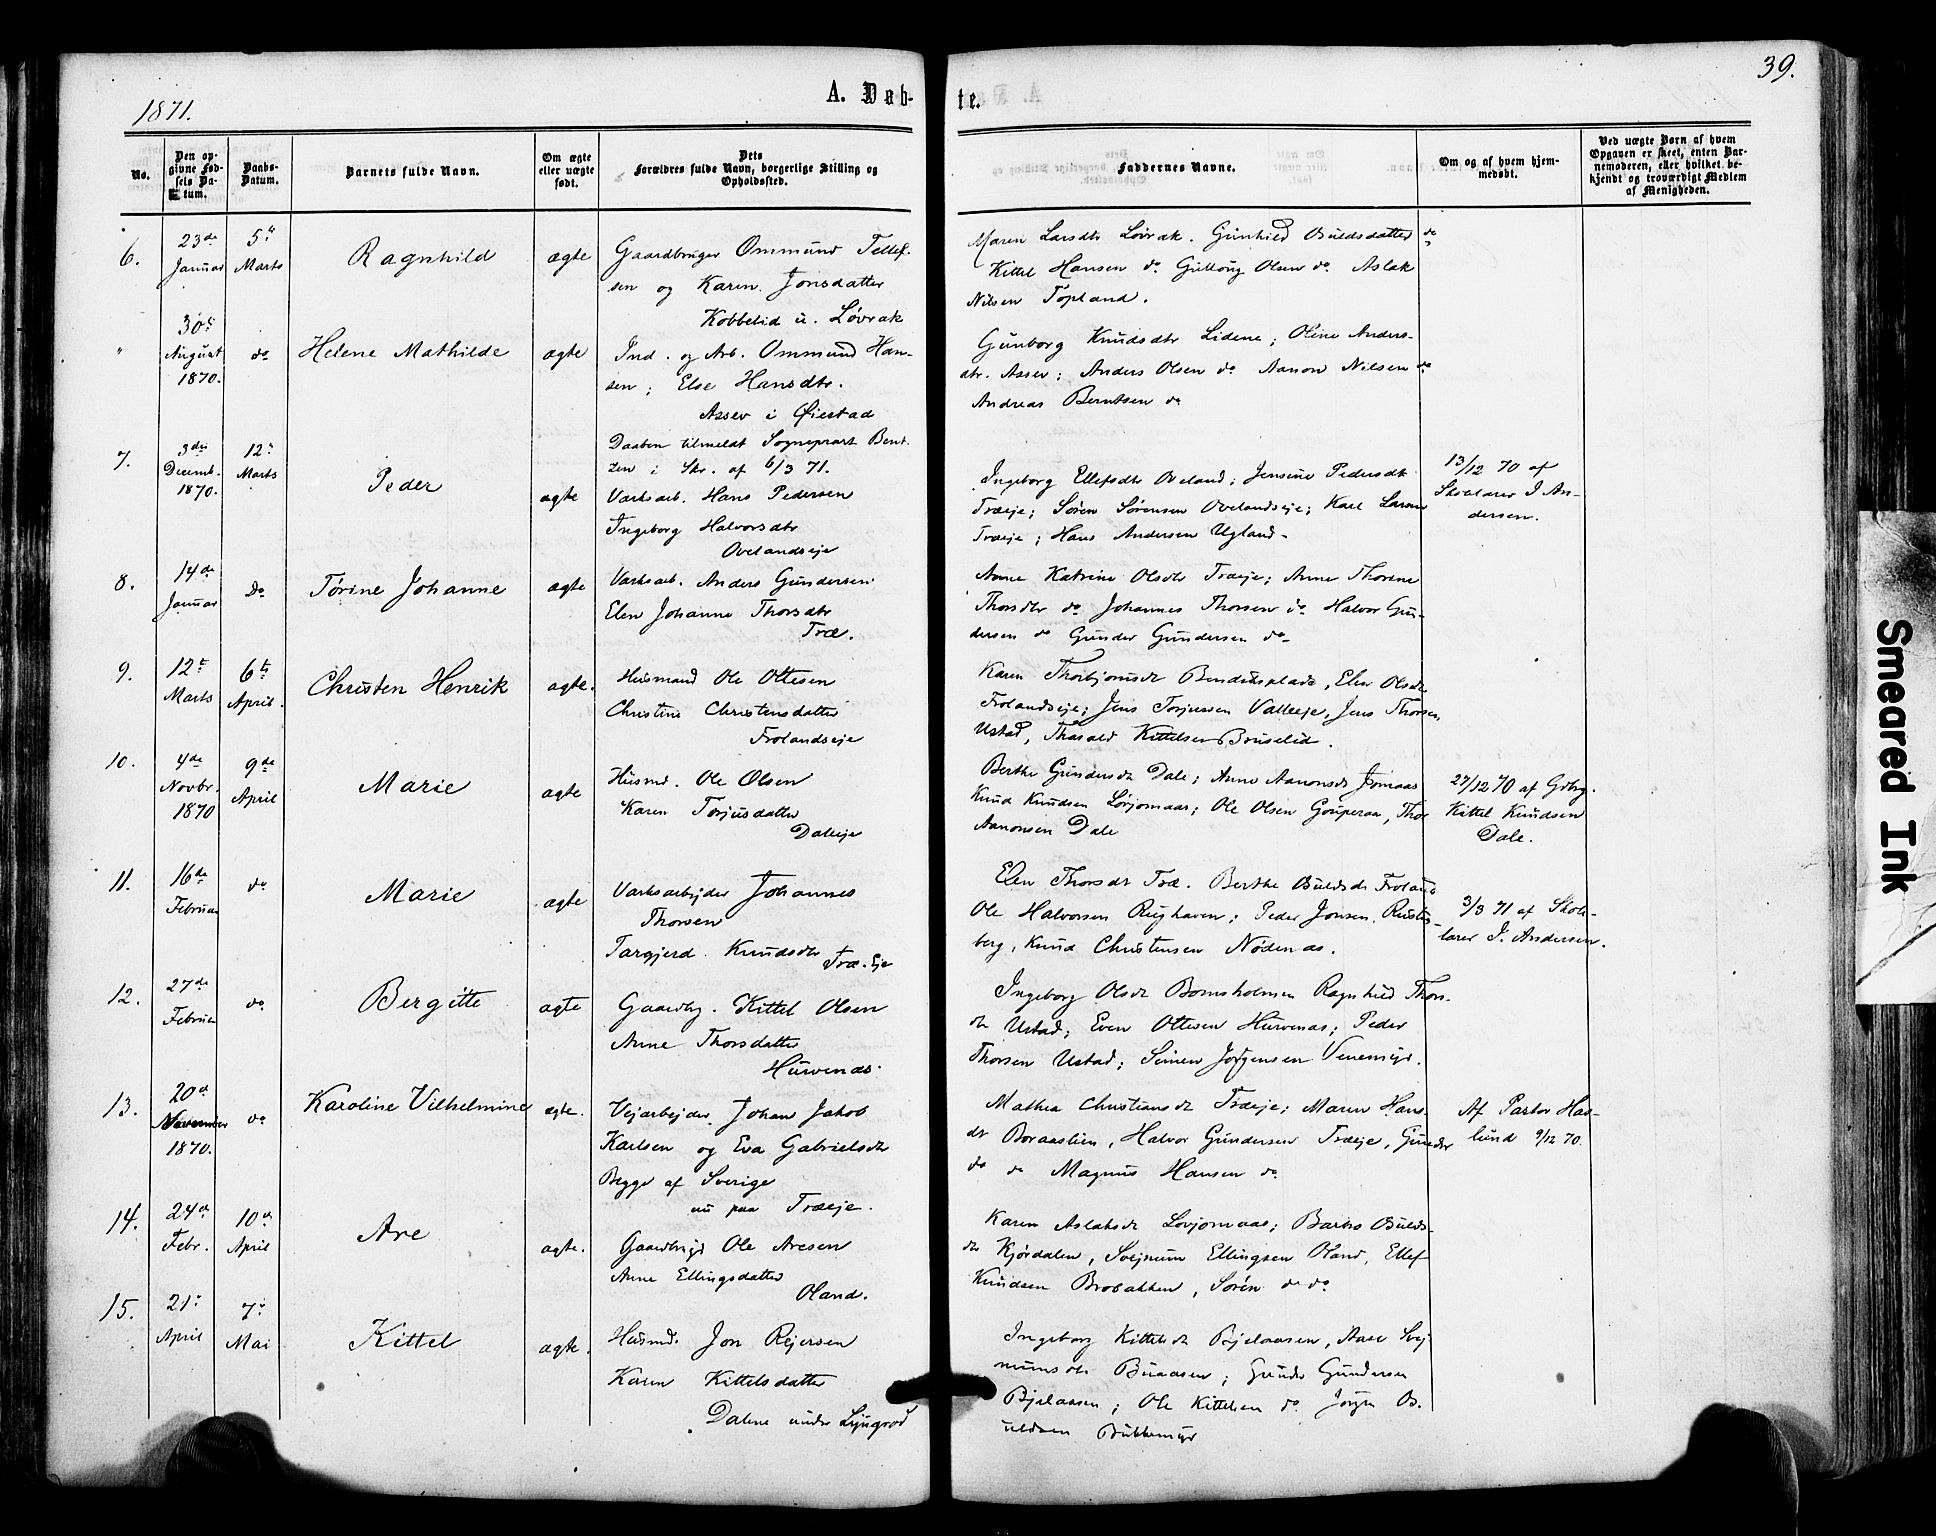 1871.
A. Døb-
te.
39.
No.
Den op-
givne Fød-
sels Da-
tum.
Daabs-
Datum.
Barnets fulde Navn.
Om ægte
eller uægte
født.
Dets
Forældres fulde Navn, borgerlige Stilling og
Opholdssted.
Faddernes Navne.
Om og af hvem hjem-
medøbt.
Ved uægte Børn af hvem
Opgaven er skeet, enten Bar-
nemoderen, eller hvilket be-
kjendt og troværdigt Medlem
af Menigheden.
6.
23de
Januar
5te
Marts
Ragnhild
ægte
Gaardbruger Ommund Tellef-
sen og Karen Jonsdatter
Kobbelid u. Løvrak
Maren Larsdtr Løvrak. Gunhild Osuldsdatter do
Kittel Hansen do Gullaug Olsen do Aslak
Nilsen Topland.
"
30te
August
1870.
do
Helene Mathilde
ægte
Ind. og Arb. Ommund Han-
sen; Else Hansdtr.
Assev i Øiestad
Daaben tilmeldt Sogneprest Bent-
zen i Skr. af 6/3 71.
Gunborg Knudsdtr Lidene; Oline Anders-
dtr. Assev; Anders Olsen do Aanon Nilsen do
Andreas Berntsen do
7.
3die
Decemb.
1870.
12te
Marts
Peder
ægte
Værksarb. Hans Pedersen
Ingeborg Halvorsdtr
Ovelandseje
Ingeborg Ellefsdtr Oveland; Jensine Pedersdt
Træeje; Søren Sørensen Ovelandseje; Karl Larsen
Træeje; Hans Andersen Ugland.
13/12 70 af
Skolelærer I An-
dersen.
8.
14de
Januar
Do
Tørine Johanne
ægte
Værksarb. Anders Gundersen
Elen Johanne Thorsdtr
Træ.
Anne Katrine Olsdtr Træeje; Anne Thorine
Thorsdtr do Johannes Thorsen do Halvor Gun-
dersen do Gunder Gundersen do
9.
12te
Marts
6te
April.
Christen Henrik
ægte.
Husmand Ole Ottesen
Christine Christensdatter
Frolandseje
Karen Thorbjørnsdt Bendiksplads, Elen Olsdtr
Frolandseje; Jens Torjussen Valleeje, Jens Thorsen
Ustad, Tharald Kittelsen Bruselid.
10.
4de
Novbr.
1870
9de
April
Marie
ægte
Husmd. Ole Olsen
Karen Torjusdatter
Daleeje
Berthe Gundersdt Dale; Anne Aanonsdt Jomaas
Knud Knudsen Lørjomaas; Ole Olsen Gouperaa, Thor
Aanonsen Dale
27/12 70 af Gdbrg.
Kittel Knudsen
Dale.
11.
16de
Februar
do
Marie
ægte
Værksarbejder Johannes
Thorsen
Targjerd Knudsdtr
Træ-Eje
Elen Thorsdt Træ. Berthe Osuldsdt Froland
Ole Halvorsen Rughaven; Peder Jonsen Rustes-
berg, Knud Christensen Nødenæs.
3/3 71 af Skole-
lærer J. Andersen.
12.
27de
Februar
do
Bergitte
ægte
Gaardbg. Kittel Olsen
Anne Thorsdatter
Hurvenæs.
Ingeborg Olsdt Bomsholmen Ragnhild Thors-
dt Ustad; Even Ottesen Hurvenæs; Peder
Thorsen Ustad; Simen Jørgensen Venemyr.
13.
20de
November
1870.
do
Karoline Vilhelmine
ægte.
Vejarbejder Johan Jakob
Karlsen og Eva Gabrielsdtr
Begge af Sverige
nu paa Træeje.
Mathea Christiansdt Træeje; Maren Hans-
dt Boraaslien, Halvor Gundersen Træeje, Gunder
do do Magnus Hansen do
Af Pastor Has-
lund 9/12 70.
14.
24de
Febr.
10de
April
Are
ægte.
Gaardbrgd Ole Aresen
Anne Ellingsdatter
Oland.
Karen Aslaksdt Lørjomaas; Barbro Osulds-
dtr Kjørdalen, Svejnum Ellingsen Oland, Ellef
Knudsen Brobakken, Søren do do
15.
21te
April
7de
Mai
Kittel
ægte.
Husmd. Jon Rejersen
Karen Kittelsdatter
Dalene under Ljugrod
Ingeborg Kittelsdt Bjelaasen, Aase Svej-
numsdtr Buaasen; Gunder Gundersen
Bjelaasen; Ole Kittelsen do Jørgen Os-
uldsen Bukkemyr
Smeared Ink